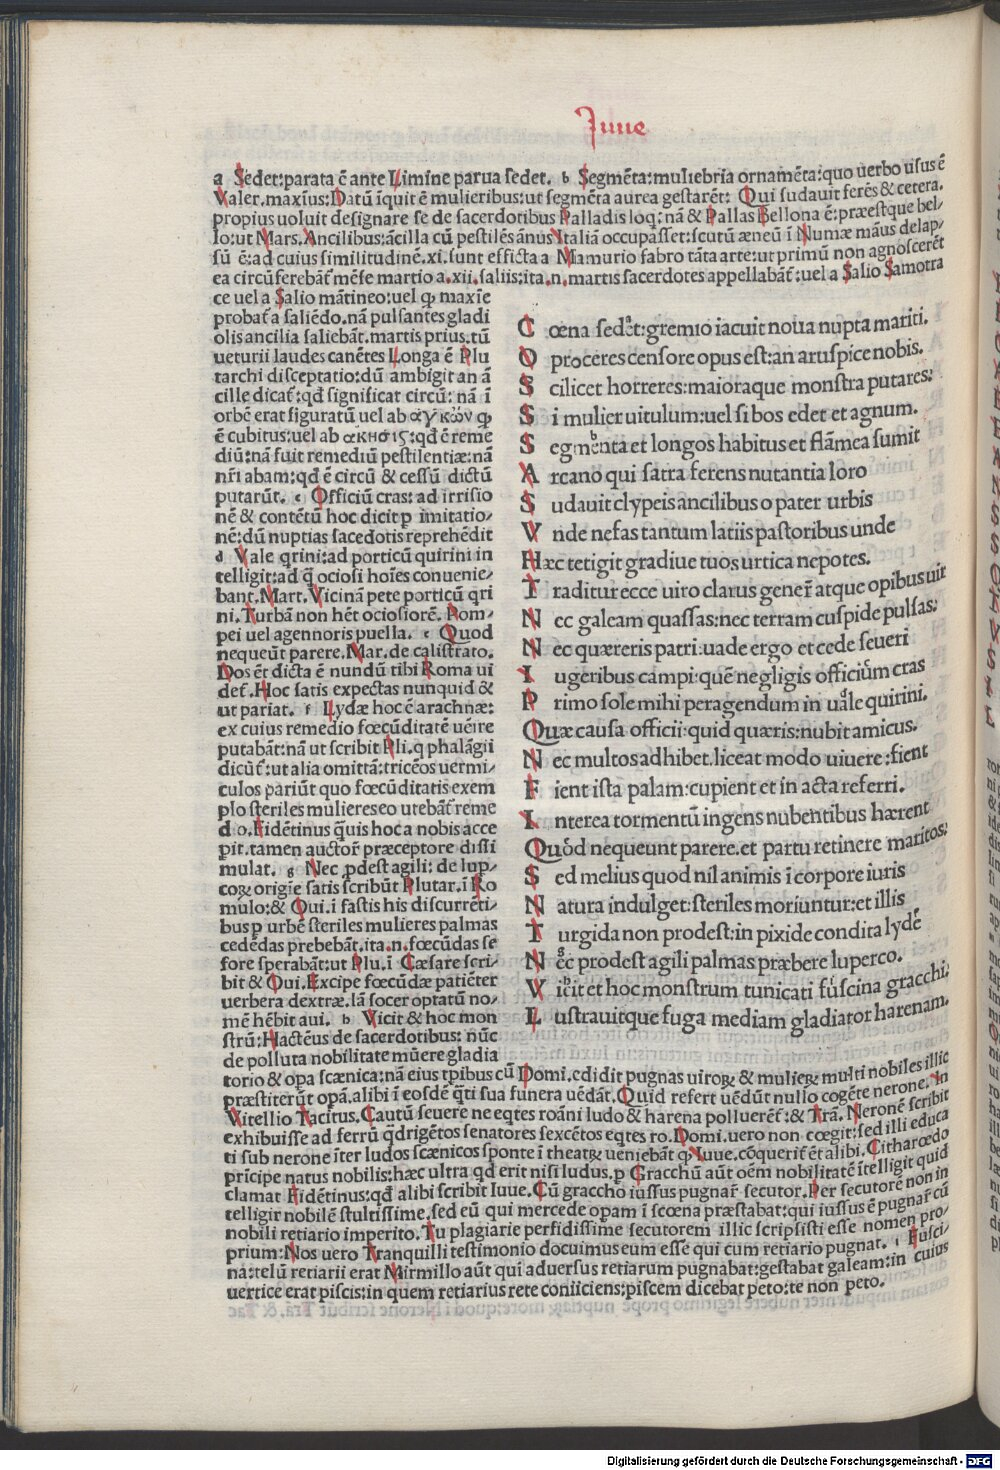 Iuue
a Sedet:parata ē ante Limine parua sedet. b Segmēta:muliebria ornamēta:quo uerbo usus ē
Valer.maxius:Datū īquit ē mulieribus:ut segmēta aurea gestarēt: Qui sudauit ferēs & cetera.
propius uoluit designare se de sacerdotibus Palladis loq:nā & Pallas Bellona ē:præestque bel-
lo:ut Mars.Ancilibus:ācilla cū pestilēs ānus Italiā occupasset:scutū æneū ī Numæ māus delap-
sū ē:ad cuius similitudinē.xi.sunt efficta a Mamurio fabro tāta arte:ut primū non agnosceret
ea circūferebāt̄ mēse martio a.xii.saliis:ita.n.martis sacerdotes appellabāt̄:uel a Salio Samotra
ce uel a Salio mātineo:uel ꝙ maxīe
probat̄ a saliēdo.nā pulsantes gladi
olis ancilia saliebāt.martis prius.tū
ueturii laudes canētes Longa ē Plu
tarchi disceptatio:dū ambigit an ā
cille dicat̄:qđ significat circū: nā ī
orbē erat figuratū uel ab αγκῶν ꝙ
ē cubitus:uel ab ακησις:qđ ē reme
diū:nā fuit remediū pestilentiæ:nā
nr̄i abam:qđ ē circū & cessū dictū
putarūt. c Officiū cras: ad irrisio
nē & contētū hoc dicit p imitatio-
nē:dū nuptias sacedotis reprehēdit
d Vale qrini:ad porticū quirini in
telligit:ad q̄ ociosi hoīes conuenie-
bant.Mart.Vicinā pete porticū qri
ni.Turbā non hēt ociosiorē.Pom-
pei uel agennoris puella. e Quod
nequeūt parere.Mar.de calistrato.
Dos ēt dicta ē nundū tibi Roma ui
det̄.Hoc satis expectas nunquid &
ut pariat. f Lydæ hoc ē arachnæ:
ex cuius remedio fœcūditatē uēire
putabāt:nā ut scribit Pli.q phalāgii
dicūt̄:ut alia omittā:tricēos uermi-
culos pariūt quo fœcūditatis exem
plo steriles mulieres eo utebāt̄ reme
dio.Fidētinus q̄uis hoc a nobis acce
pit.tamen auctor̄ præceptore dissi
mulat. g Nec ꝓdest agili: de lup-
coꝝ origīe satis scribūt Plutar.ī Ro
mulo:& Oui.ī fastis his discurrēti-
bus p urbē steriles mulieres palmas
cedēdas prebebāt.ita.n.fœcūdas se
fore sperabāt:ut Plu.ī Cæsare scri-
bit & Oui.Excipe fœcūdæ patiēter
uerbera dextræ.Iā socer optatū no-
mē hēbit aui. h Vicit & hoc mon
strū:Hactēus de sacerdotibus: nūc
de polluta nobilitate mūere gladia
C œna sedet:gremio iacuit noua nupta mariti.
O proceres censore opus est:an aruspice nobis.
S cilicet horreres:maioraque monstra putares:
S i mulier uitulum:uel si bos edet et agnum.
S egmenta et longos habitus et flāmea sumit
A rcano qui satra ferens nutantia loro
S udauit clypeis ancilibus o pater urbis
V nde nefas tantum latiis pastoribus unde
H æc tetigit gradiue tuos urtica nepotes.
T raditur ecce uiro clarus gener̄ atque opibus uir
N ec galeam quassas:nec terram cuspide pulsas:
N ec quæreris patri:uade ergo et cede seueri
I ugeribus campi:quē negligis officium cras
P rimo sole mihi peragendum in uale quirini.
Quæ causa officii:quid quæris:nubit amicus.
N ec multos adhibet.liceat modo uiuere:fient
F ient ista palam:cupient et in acta referri.
I nterea tormentū ingens nubentibus hærent
Quod nequeunt parere.et partu retinere maritos:
S ed melius quod nil animis ī corpore iuris
N atura indulget:steriles moriuntur:et illis
T urgida non prodest:in pixide condita lyde
N ec prodest agili palmas præbere luperco.
V icit et hoc monstrum tunicati fuscina gracchi:
L ustrauitque fuga mediam gladiator harenam.
torio & opa scænica:nā eius tpibus cū Domi.edidit pugnas uiroꝝ & mulieꝝ multi nobiles illic
præstiterūt opā.alibi ī eosdē q̄ti sua funera uēdāt.Quid refert uēdūt nullo cogēte nerone.In
Vitellio Tacitus.Cautū seuere ne eqtes roāni ludo & harena polluerēt̄:& Trā. Neronē scribit
exhibuisse ad ferrū qdrigētos senatores sexcētos eqtes ro.Domi.uero non cœgit:sed illi educa
ti sub nerone īter ludos scænicos sponte ī theatꝝ ueniebāt ꝙ Iuue.cōquerit̄ ēt alibi.Citharœdo
prīcipe natus nobilis:hæc ultra qđ erit nisi ludus.p Gracchū aūt oēm nobilitatē ītelligit quid
clamat Fidētinus:qđ alibi scribit Iuue.Cū graccho iussus pugnar̄ secutor.Per secutorē non in
telligir nobilē stultissime.sed eū qui mercede opam ī scœna præstabat:qui iussus ē pugnar̄ cū
nobili retiario imperito.Tu plagiarie perfidissime secutorem illic scripsisti esse nomen pro-
prium:Nos uero Tranquilli testimonio docuimus eum esse qui cum retiario pugnat. i Fusci-
na:telū retiarii erat Mirmillo aūt qui aduersus retiarum pugnabat:gestabat galeam:in cuius
uertice erat piscis:in quem retiarius rete coniiciens:piscem dicebat peto:te non peto.
Digitalisierung gefördert durch die Deutsche Forschungsgemeinschaft - DFG